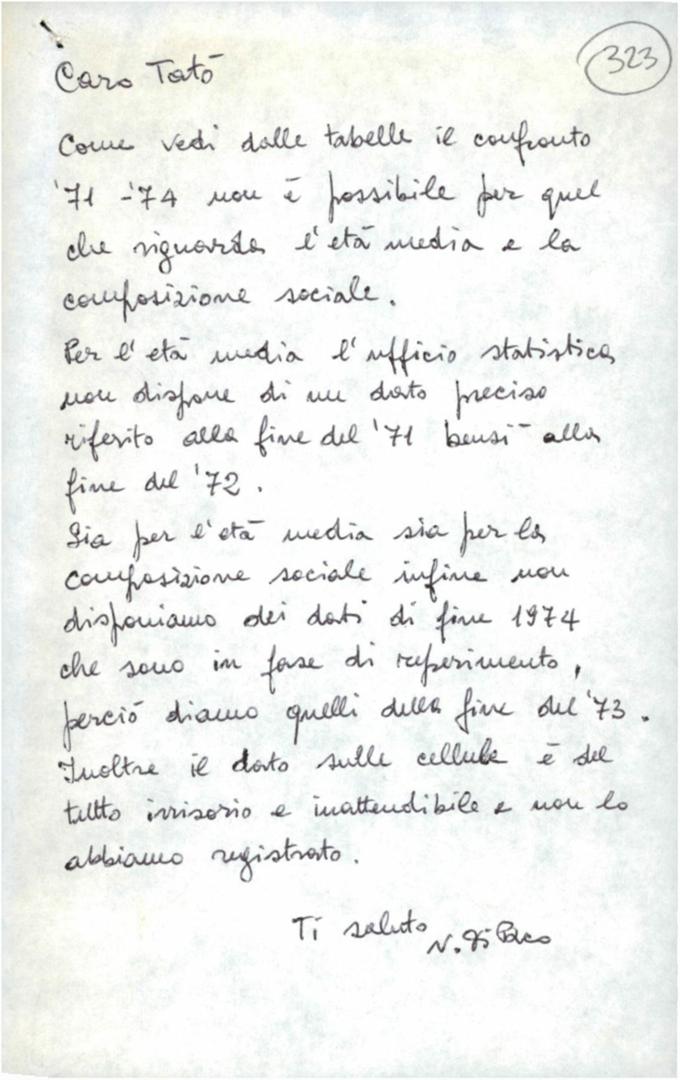 323
Caro Tatò
Come vedi dalle tabelle il confronto
'71 - '74 non è possibile per quel
che riguarda l'età media e la
composizione sociale.
Per l'età media l'ufficio statistica
non dispone di un dato preciso
riferito alla fine del '71 bensì alla
fine del '72.
Sia per l'età media sia per la
composizione sociale infine non
disponiamo dei dati di fine 1974
che sono in fase di reperimento,
perciò diamo quelli della fine del '73.
Inoltre il dato sulle cellule è del
tutto irrisorio e inattendibile e non lo
abbiamo registrato.
Ti saluto
N. Di